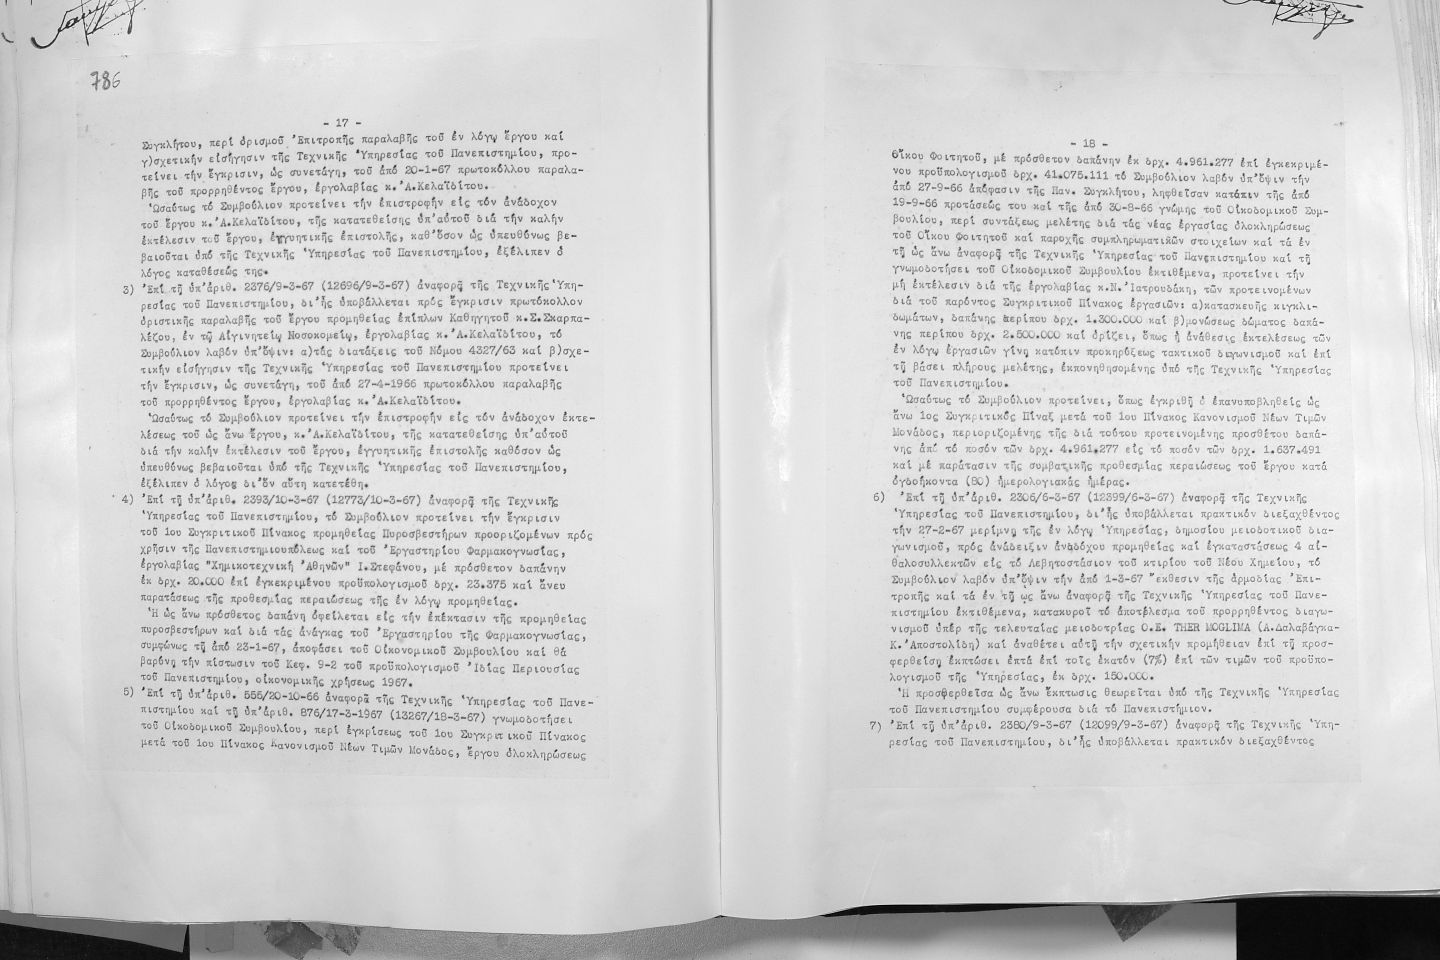 786
- 17 -
Συγκλήτου, περί ὁρισμοῦ Ἐπιτροπῆς παραλαβῆς τοῦ ἐν λόγῳ ἔργου καί
γ)σχετικήν εἰσήγησιν τῆς Τεχνικῆς Ὑπηρεσίας τοῦ Πανεπιστημίου, προ-
τείνει τήν ἔγκρισιν, ὡς συνετάγη, τοῦ ἀπό 20-1-67 πρωτοκόλλου παραλα-
βῆς τοῦ προρρηθέντος ἔργου, ἐργολαβίας κ.Ἀ.Κελαΐδίτου.
Ὡσαύτως τό Συμβούλιον προτείνει τήν ἐπιστροφήν εἰς τόν ἀνάδοχον
τοῦ ἔργου κ.Ἀ.Κελαΐδίτου, τῆς κατατεθείσης ὑπ'αὐτοῦ διά τήν καλήν
ἐκτέλεσιν τοῦ ἔργου, ἐγγυητικῆς ἐπιστολῆς, καθ'ὅσον ὡς ὑπευθύνως βε-
βαιοῦται ὑπό τῆς Τεχνικῆς Ὑπηρεσίας τοῦ Πανεπιστημίου, ἐξέλιπεν ὁ
λόγος καταθέσεώς της.
3) Ἐπί τῇ ὑπ'ἀριθ. 2376/9-3-67 (12696/9-3-67) ἀναφορᾷ τῆς Τεχνικῆς Ὑπη-
ρεσίας τοῦ Πανεπιστημίου, δι'ἧς ὑποβάλλεται πρός ἔγκρισιν πρωτόκολλον
ὁριστικῆς παραλαβῆς τοῦ ἔργου προμηθείας ἐπίπλων Καθηγητοῦ κ.Σ.Σκαρπα-
λέζου, ἐν τῷ Αἰγινητείῳ Νοσοκομείῳ, ἐργολαβίας κ.Ἀ.Κελαΐδίτου, τό
Συμβούλιον λαβόν ὑπ'ὄψιν: α)τάς διατάξεις τοῦ Νόμου 4327/63 καί β)σχε-
τικήν εἰσήγησιν τῆς Τεχνικῆς Ὑπηρεσίας τοῦ Πανεπιστημίου προτείνει
τήν ἔγκρισιν, ὡς συνετάγη, τοῦ ἀπό 27-4-1966 πρωτοκόλλου παραλαβῆς
τοῦ προρρηθέντος ἔργου, ἐργολαβίας κ.Ἀ.Κελαΐδίτου.
Ὡσαύτως τό Συμβούλιον προτείνει τήν ἐπιστροφήν εἰς τόν ἀνάδοχον ἐκτε-
λέσεως τοῦ ὡς ἄνω ἔργου, κ.Ἀ.Κελαΐδίτου, τῆς κατατεθείσης ὑπ'αὐτοῦ
διά τήν καλήν ἐκτέλεσιν τοῦ ἔργου, ἐγγυητικῆς ἐπιστολῆς καθόσον ὡς
ὑπευθύνως βεβαιοῦται ὑπό τῆς Τεχνικῆς Ὑπηρεσίας τοῦ Πανεπιστημίου,
ἐξέλιπεν ὁ λόγος δι'ὅν αὕτη κατετέθη.
4) Ἐπί τῇ ὑπ'ἀριθ. 2393/10-3-67 (12773/10-3-67) ἀναφορᾷ τῆς Τεχνικῆς
Ὑπηρεσίας τοῦ Πανεπιστημίου, τό Συμβούλιον προτείνει τήν ἔγκρισιν
τοῦ 1ου Συγκριτικοῦ Πίνακος προμηθείας Πυροσβεστήρων προοριζομένων πρός
χρῆσιν τῆς Πανεπιστημιουπόλεως καί τοῦ Ἐργαστηρίου Φαρμακογνωσίας,
ἐργολαβίας "Χημικοτεχνική Ἀθηνῶν" Ι.Στεφάνου, μέ πρόσθετον δαπάνην
ἐκ δρχ. 20.000 ἐπί ἐγκεκριμένου προϋπολογισμοῦ δρχ. 23.375 καί ἄνευ
παρατάσεως τῆς προθεσμίας περαιώσεως τῆς ἐν λόγῳ προμηθείας.
Ἡ ὡς ἄνω πρόσθετος δαπάνη ὀφείλεται εἰς τήν ἐπέκτασιν τῆς προμηθείας
πυροσβεστήρων καί διά τάς ἀνάγκας τοῦ Ἐργαστηρίου τῆς Φαρμακογνωσίας,
συμφώνως τῇ ἀπό 23-1-67, ἀποφάσει τοῦ Οἰκονομικοῦ Συμβουλίου καί θά
βαρύνῃ τήν πίστωσιν τοῦ Κεφ. 9-2 τοῦ προϋπολογισμοῦ Ἰδίας Περιουσίας
τοῦ Πανεπιστημίου, οἰκονομικῆς χρήσεως 1967.
5) Ἐπί τῇ ὑπ'ἀριθ. 555/20-10-66 ἀναφορᾷ τῆς Τεχνικῆς Ὑπηρεσίας τοῦ Πανε-
πιστημίου καί τῇ ὑπ'ἀριθ. 876/17-3-1967 (13267/18-3-67) γνωμοδοτήσει
τοῦ Οἰκοδομικοῦ Συμβουλίου, περί ἐγκρίσεως τοῦ 1ου Συγκριτικοῦ Πίνακος
μετά τοῦ 1ου Πίνακος Κανονισμοῦ Νέων Τιμῶν Μονάδος, ἔργου ὁλοκληρώσεως
- 18 -
Οἴκου Φοιτητοῦ, μέ πρόσθετον δαπάνην ἐκ δρχ. 4.961.277 ἐπί ἐγκεκριμέ-
νου προϋπολογισμοῦ δρχ. 41.075.111 τό Συμβούλιον λαβόν ὑπ'ὄψιν τήν
ἀπό 27-9-66 ἀπόφασιν τῆς Παν. Συγκλήτου, ληφθεῖσαν κατόπιν τῆς ἀπό
19-9-66 προτάσεώς του καί τῆς ἀπό 30-8-66 γνώμης τοῦ Οἰκοδομικοῦ Συμ-
βουλίου, περί συντάξεως μελέτης διά τάς νέας ἐργασίας ὁλοκληρώσεως
τοῦ Οἴκου Φοιτητοῦ καί παροχῆς συμπληρωματικῶν στοιχείων καί τά ἐν
τῇ ὡς ἄνω ἀναφορᾷ τῆς Τεχνικῆς Ὑπηρεσίας τοῦ Πανεπιστημίου καί τῇ
γνωμοδοτήσει τοῦ Οἰκοδομικοῦ Συμβουλίου ἐκτιθέμενα, προτείνει τήν
μή ἐκτέλεσιν διά τῆς ἐργολαβίας κ.Ν.Ἰατρουδάκη, τῶν προτεινομένων
διά τοῦ παρόντος Συγκριτικοῦ Πίνακος ἐργασιῶν: α)κατασκευῆς κιγκλι-
δωμάτων, δαπάνης περίπου δρχ. 1.300.000 καί β)μονώσεως δώματος δαπά-
νης περίπου δρχ. 2.500.000 καί ὁρίζει, ὅπως ἡ ἀνάθεσις ἐκτελέσεως τῶν
ἐν λόγῳ ἐργασιῶν γίνῃ κατόπιν προκηρύξεως τακτικοῦ διαγωνισμοῦ καί ἐπί
τῇ βάσει πλήρους μελέτης, ἐκπονηθησομένης ὑπό τῆς Τεχνικῆς Ὑπηρεσίας
τοῦ Πανεπιστημίου.
Ὡσαύτως τό Συμβούλιον προτείνει, ὅπως ἐγκριθῇ ὁ ἐπανυποβληθείς ὡς
ἄνω 1ος Συγκριτικός Πίναξ μετά τοῦ 1ου Πίνακος Κανονισμοῦ Νέων Τιμῶν
Μονάδος, περιοριζομένης τῆς διά τούτου προτεινομένης προσθέτου δαπά-
νης ἀπό τό ποσόν τῶν δρχ. 4.961.277 εἰς τό ποσόν τῶν δρχ. 1.637.491
καί μέ παράτασιν τῆς συμβατικῆς προθεσμίας περαιώσεως τοῦ ἔργου κατά
ὀγδοήκοντα (80) ἡμερολογιακάς ἡμέρας.
6) Ἐπί τῇ ὑπ'ἀριθ. 2306/6-3-67 (12399/6-3-67) ἀναφορᾷ τῆς Τεχνικῆς
Ὑπηρεσίας τοῦ Πανεπιστημίου, δι'ἧς ὑποβάλλεται πρακτικόν διεξαχθέντος
τήν 27-2-67 μερίμνῃ τῆς ἐν λόγῳ Ὑπηρεσίας, δημοσίου μειοδοτικοῦ δια-
γωνισμοῦ, πρός ἀνάδειξιν ἀναδόχου προμηθείας καί ἐγκαταστάσεως 4 αἰ-
θαλοσυλλεκτῶν εἰς τό Λεβητοστάσιον τοῦ κτιρίου τοῦ Νέου Χημείου, τό
Συμβούλιον λαβόν ὑπ'ὄψιν τήν ἀπό 1-3-67 ἔκθεσιν τῆς ἁρμοδίας Ἐπι-
τροπῆς καί τά ἐν τῇ ὡς ἄνω ἀναφορᾷ τῆς Τεχνικῆς Ὑπηρεσίας τοῦ Πανε-
πιστημίου ἐκτιθέμενα, κατακυροῖ τό ἀποτέλεσμα τοῦ προρρηθέντος διαγω-
νισμοῦ ὑπέρ τῆς τελευταίας μειοδοτρίας Ο.Ε. THER MOGLIMA (Α.Δαλαβάγκα-
Κ.Ἀποστολίδη) καί ἀναθέτει αὐτῇ τήν σχετικήν προμήθειαν ἐπί τῇ προσ-
φερθείσῃ ἐκπτώσει ἑπτά ἐπί τοῖς ἑκατόν (7%) ἐπί τῶν τιμῶν τοῦ προϋπο-
λογισμοῦ τῆς Ὑπηρεσίας, ἐκ δρχ. 150.000.
Ἡ προσφερθεῖσα ὡς ἄνω ἔκπτωσις θεωρεῖται ὑπό τῆς Τεχνικῆς Ὑπηρεσίας
τοῦ Πανεπιστημίου συμφέρουσα διά τό Πανεπιστήμιον.
7) Ἐπί τῇ ὑπ'ἀριθ. 2380/9-3-67 (12099/9-3-67) ἀναφορᾷ τῆς Τεχνικῆς Ὑπη-
ρεσίας τοῦ Πανεπιστημίου, δι'ἧς ὑποβάλλεται πρακτικόν διεξαχθέντος